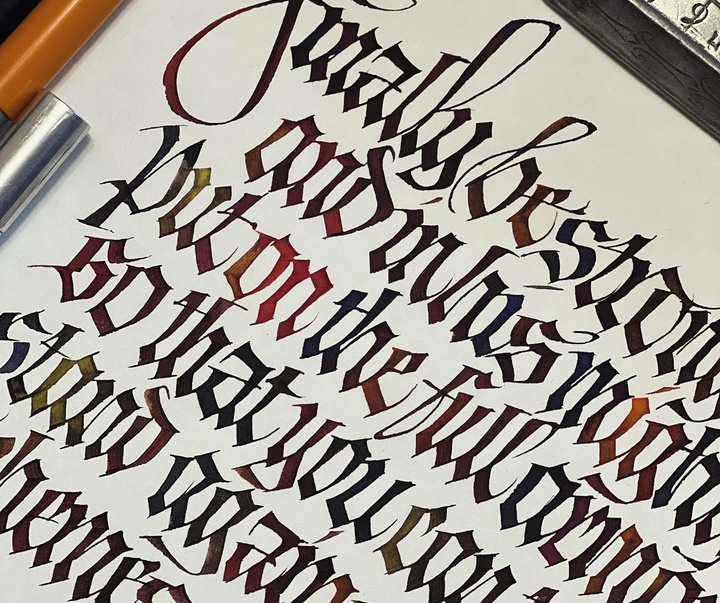 Finally be strong
and in his migh
put on the full armo
So that you can
stand again
hemes